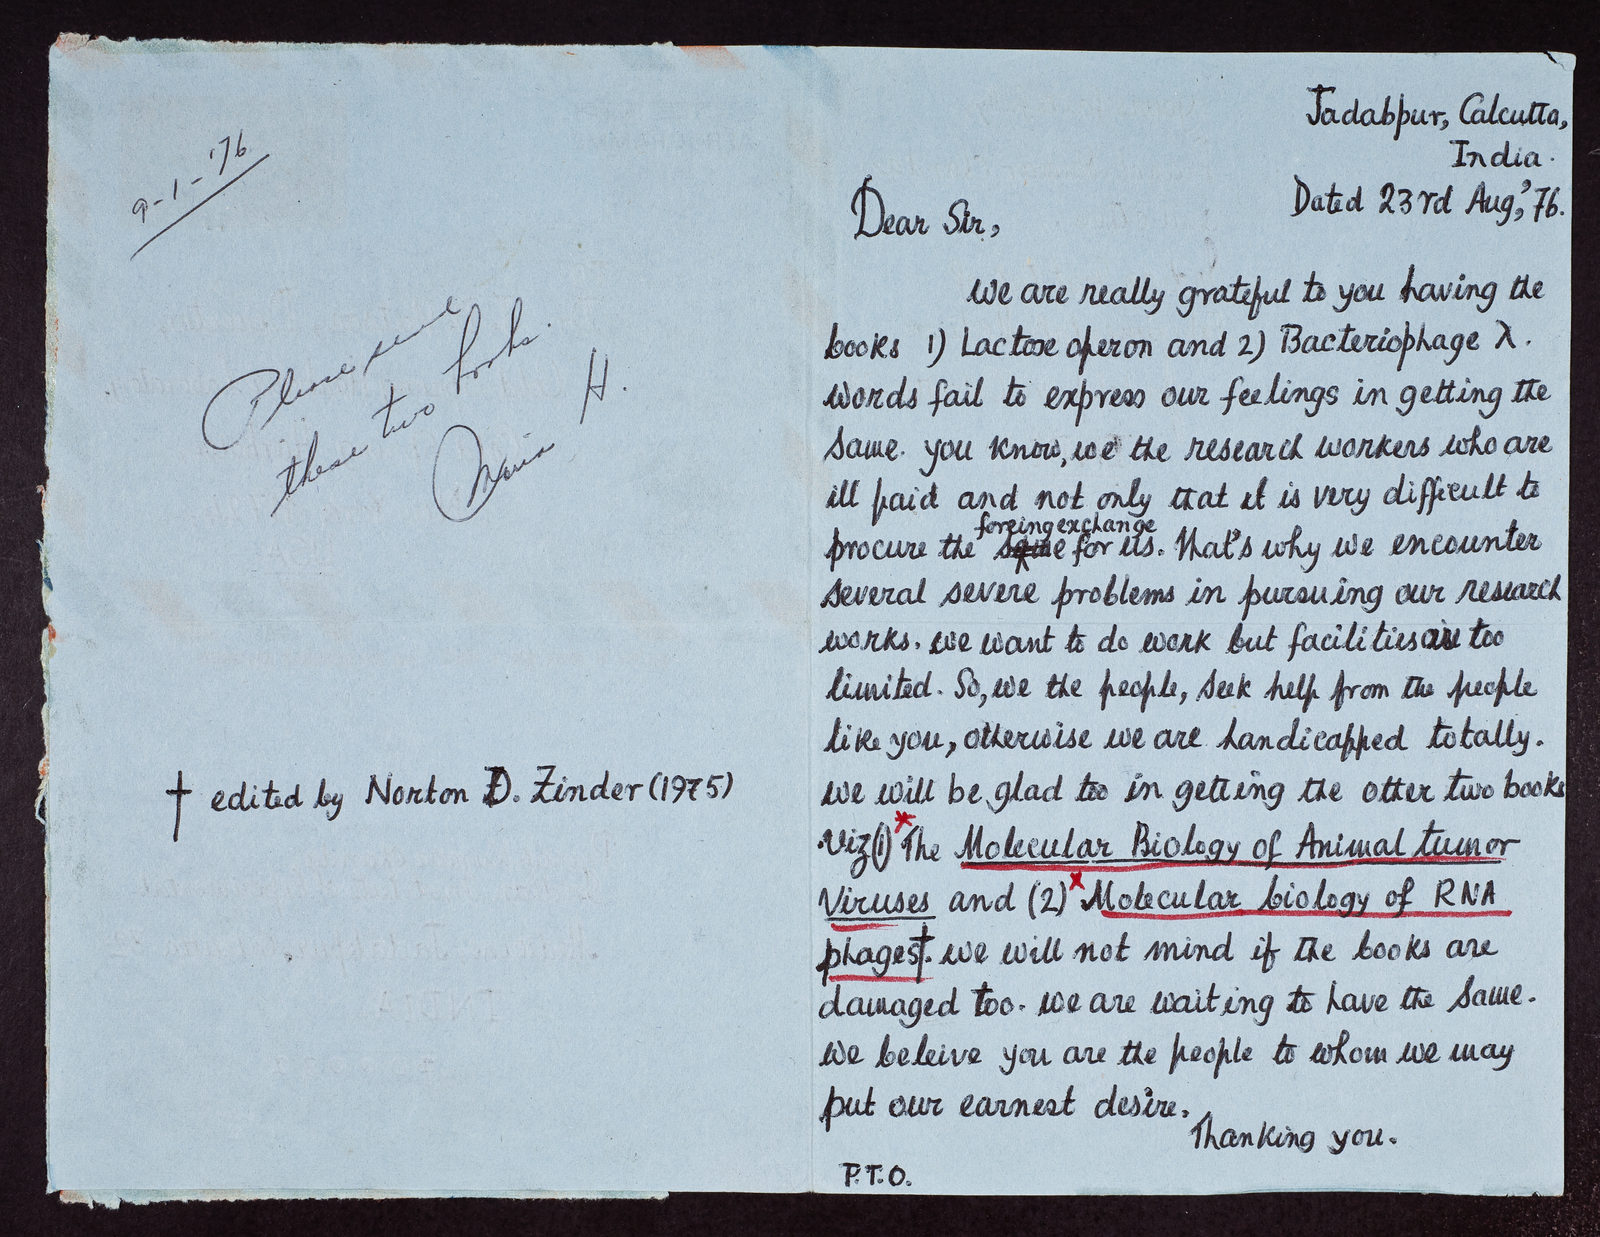 9-1-'76
Please send
these two books.
H.
† edited by Norton D. Zinder (1975)
Jadabpur, Calcutta,
India.
Dated 23rd Aug,'76.
Dear Sir,
We are really grateful to you having the
books 1) Lactose operon and 2) Bacteriophage λ.
Words fail to express our feelings in getting the
same. You know, we the research workers who are
ill paid and not only that it is very difficult to
foreing exchange
procure the same for us. That's why we encounter
several severe problems in pursuing our research
works. We want to do work but facilities are too
limited. So, we the people, seek help from the people
like you, otherwise we are handicapped totally.
We will be glad too in getting the other two books
Viz (1) *The Molecular Biology of Animal tumor
Viruses and (2) *Molecular biology of RNA
phages†. We will not mind if the books are
damaged too. We are waiting to have the same.
We beleive you are the people to whom we may
put our earnest desire.
Thanking you.
P.T.O.